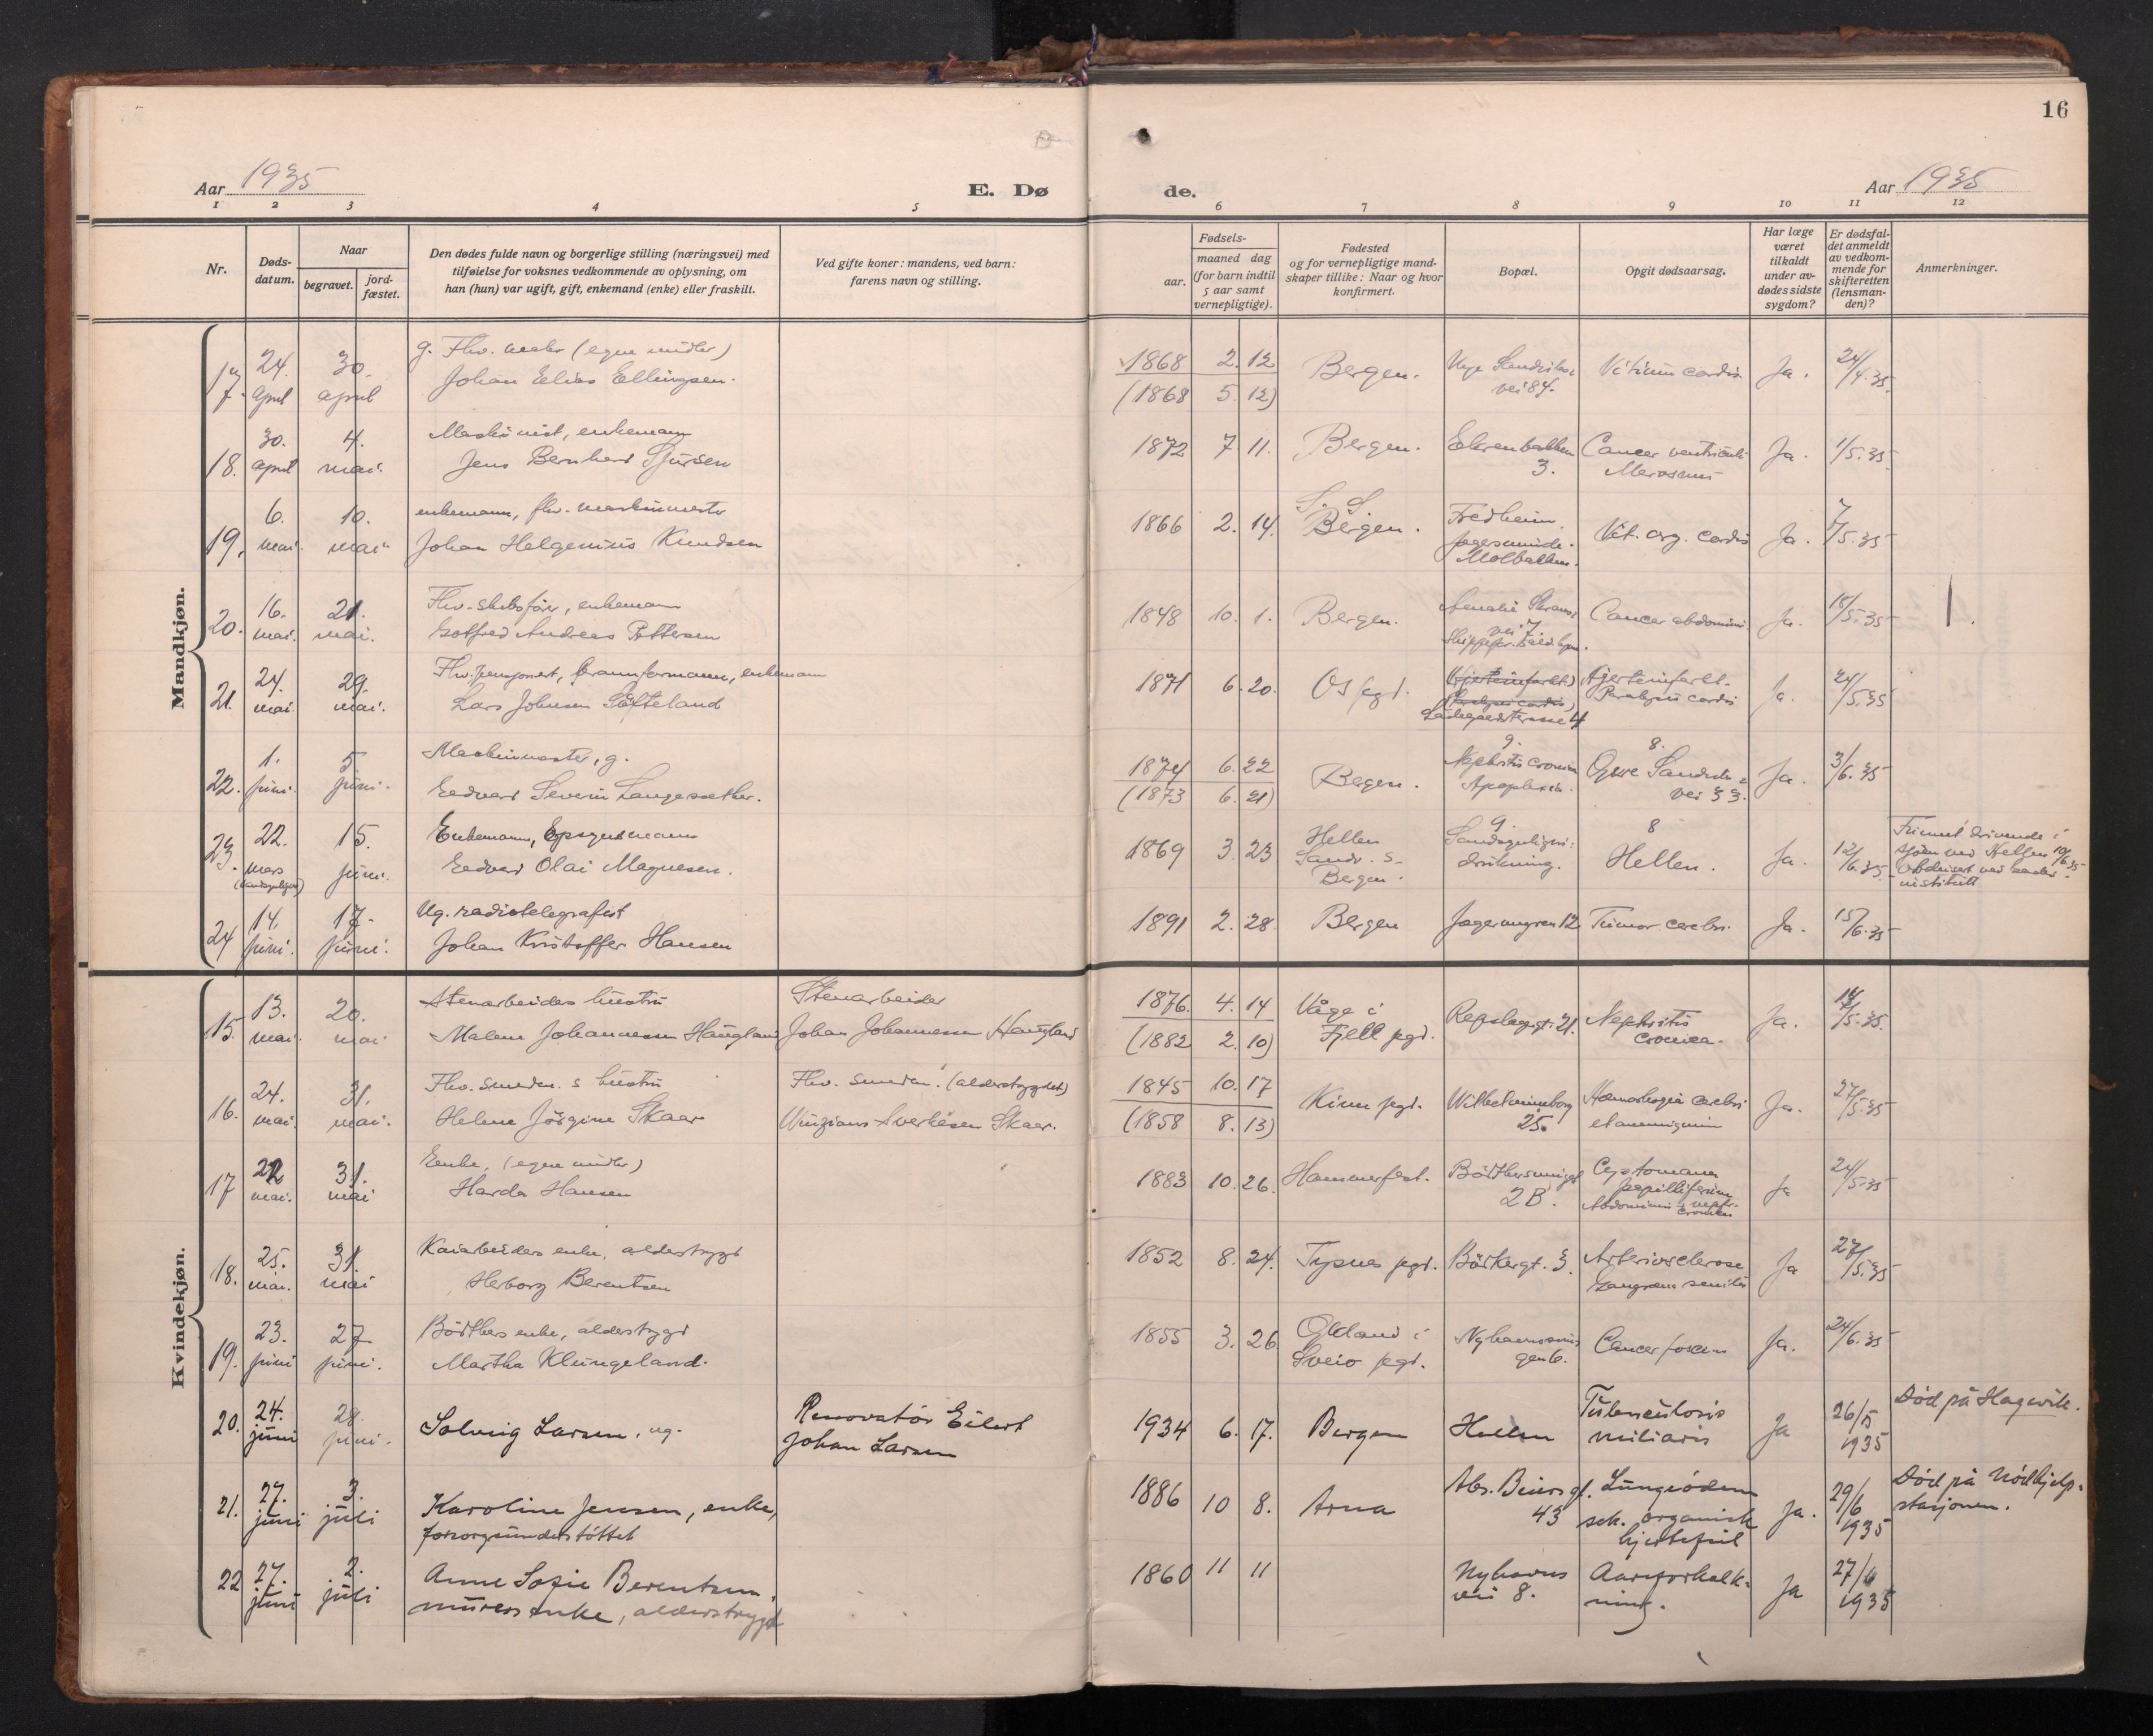 16
Aar 1935
E. Dø
de.
Aar 1935
1 2 3 4 5 6 7 8 9 10 11 12
Nr.
Døds-
datum.
Naar
begravet.
jord-
fæstet.
Den dødes fulde navn og borgerlige stilling (næringsvei) med
tilføielse for voksnes vedkommende av oplysning, om
han (hun) var ugift, gift, enkemand (enke) eller fraskilt.
Ved gifte koner: mandens, ved barn:
farens navn og stilling.
Fødsels-
aar.
maaned dag
(for barn indtil
5 aar samt
vernepligtige).
Fødested
og for vernepligtige mand-
skaper tillike: Naar og hvor
konfirmert.
Bopæl.
Opgit dødsaarsag.
Har læge
været
tilkaldt
under av-
dødes sidste
sygdom?
Er dødsfal-
det anmeldt
av vedkom-
mende for
skifteretten
(lensman-
den)?
Anmerkninger.
Mandkjøn.
17. 24. april 30. april
g. Fhv. (egne midler)
Johan Elias Ellingsen.
1868 2. 12
(1868 5. 12)
Bergen.
vei 84.
Vitium cordis
Ja.
24/4.35
18. 30. april 4. mai.
Maskinist, enkemann
Jens Bernhard Sjursen
1872 7. 11.
Bergen.
Ekrenbakken
3.
Cancer ventriculi
Ja.
1/5.35
19. 6. mai. 10. mai.
enkemann, fhv. maskinmester
Johan Helgenius Knudsen
1866 2. 14.
Bergen.
Fredheim.
Vit. org. cordis
Ja.
7/5.35
20. 16. mai. 21. mai.
Fhv. skibsfører, enkemann
Gotfred Andreas Pettersen
1848 10. 1.
Bergen.
Amalie Skrams
vei 7.
Cancer abdomini
Ja.
18/5.35
21. 24. mai. 29. mai.
Fhv. pensjonert, brannformann, enkemann
Lars Johnsen Softeland
1871 6. 20.
Os pgd.
(Hjerteinfarkt)
(Paralysis cordis)
Ladegaardsterrasse 4
Hjerteinfarkt.
Paralysis cordis
Ja.
24/5.35
22. 1. juni. 5. juni.
Maskinmester, g.
Edvard Severin Langesæther.
1874 6. 22
(1873 6. 21)
Bergen.
9.
Apoplexia.
8.
vei 33.
Ja.
3/6.35
23. 22. mars (sandsynligvis) 15. juni.
Enkemann, Opsynsmann
Edvard Olai Magnesen.
1869 3. 23
Hellen
Sandv. s.
Bergen.
9.
Sandsynligvis
drukning.
8
Hellen.
Ja.
12/6.35
Funnet drivende i
sjøen ved Hellen 10/6.35
institutt
24 14. juni. 17. juni.
Ug. radiotelegrafist
Johan Kristoffer Hansen
1891 2. 28.
Bergen
Jægermyren 12
Tumor cerebri.
Ja.
15/6.35
Kvindekjøn.
15. 13. mai. 20. mai
Stenarbeiders hustru
Malene Johannessen Haugland
Stenarbeider
Johan Johannessen Haugland
1876. 4. 14
(1882 2. 10)
Våge i
Fjell pgd.
Repslagergt. 21.
Nephritis
cronica.
Ja.
14/5.35.
16. 24. mai. 31. mai.
Fhv. smeden. s hustru
Helene Jörgine Skaar
Fhv. smeden. (alderstrygdet)
Skaar.
1845 10. 17
(1858 8. 13)
Kinn pgd.
Wilhelmineborg
25.
Hæmorhagia cerebri
Ja.
27/5.35
17 22. mai. 31. mai
Enke. (egne midler)
Harda Hansen
1883 10. 26.
Hammerfest.
2 B.
papilliferum
Ja
24/5.35
18. 25. mai. 31. mai
Kaiarbeiders enke, alderstrygd
Herborg Berentsen
1852 8. 24.
Tysnes pgd.
Bödkergt. 3.
Arteriosclerose
Gangræna senilis
Ja
27/5.35
19. 23. juni 27. juni.
Bödkers enke, alderstrygd
Martha Klungeland.
1855 3. 26
Økland i
Sveio pgd.
gen 6.
Ja.
24/6.35
20. 24. juni 28. juni.
Solveig Larsen, ug.
Renovatör Eilert
Johan Larsen
1934 6. 17.
Bergen
Hellen
Tuberculosis
miliaris
Ja
26/5
1935
Död på Hagevik.
21. 27. juni 3. juli
Karoline Jensen, enke,
forsorgsunderstöttet
1886 10 8.
Arna
Abs. Beiers gt.
43
Lungeödem
sek. organisk
hjertefeil
Ja.
29/6
1935
Död på Nödhjelps-
stasjonen.
22 27. juni 2. juli
Anne Sofie Berentsen,
murers enke, alderstrygd
1860 11 11
Nyhavns
vei 8.
Aareforkalk-
ning.
Ja
27/6
1935